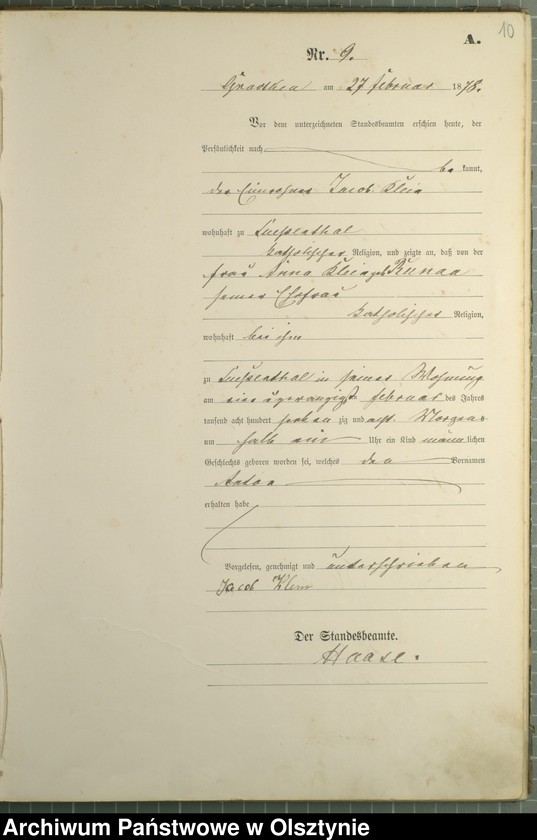 10
A.
Nr. 9.
am 27 Februar 1878.
Vor dem unterzeichneten Standesbeamten erschien heute, der
Persönlichkeit nach
be kannt,
der Einwohner Jacob Klein
wohnhaft zu
katholischer Religion, und zeigte an, daß von der
Frau Anna Klein geb.
seiner Ehefrau
katholischer Religion,
wohnhaft bei ihm
zu in seiner Wohnung
am Februar des Jahres
tausend acht hundert sieben zig und acht Morgens
um halb ein Uhr ein Kind männlichen
Geschlechts geboren worden sei, welches den Vornamen
Anton
erhalten habe
Vorgelesen, genehmigt und unterschrieben
Jacob Klein
Der Standesbeamte.
Haase.
Archiwum Państwowe w Olsztynie